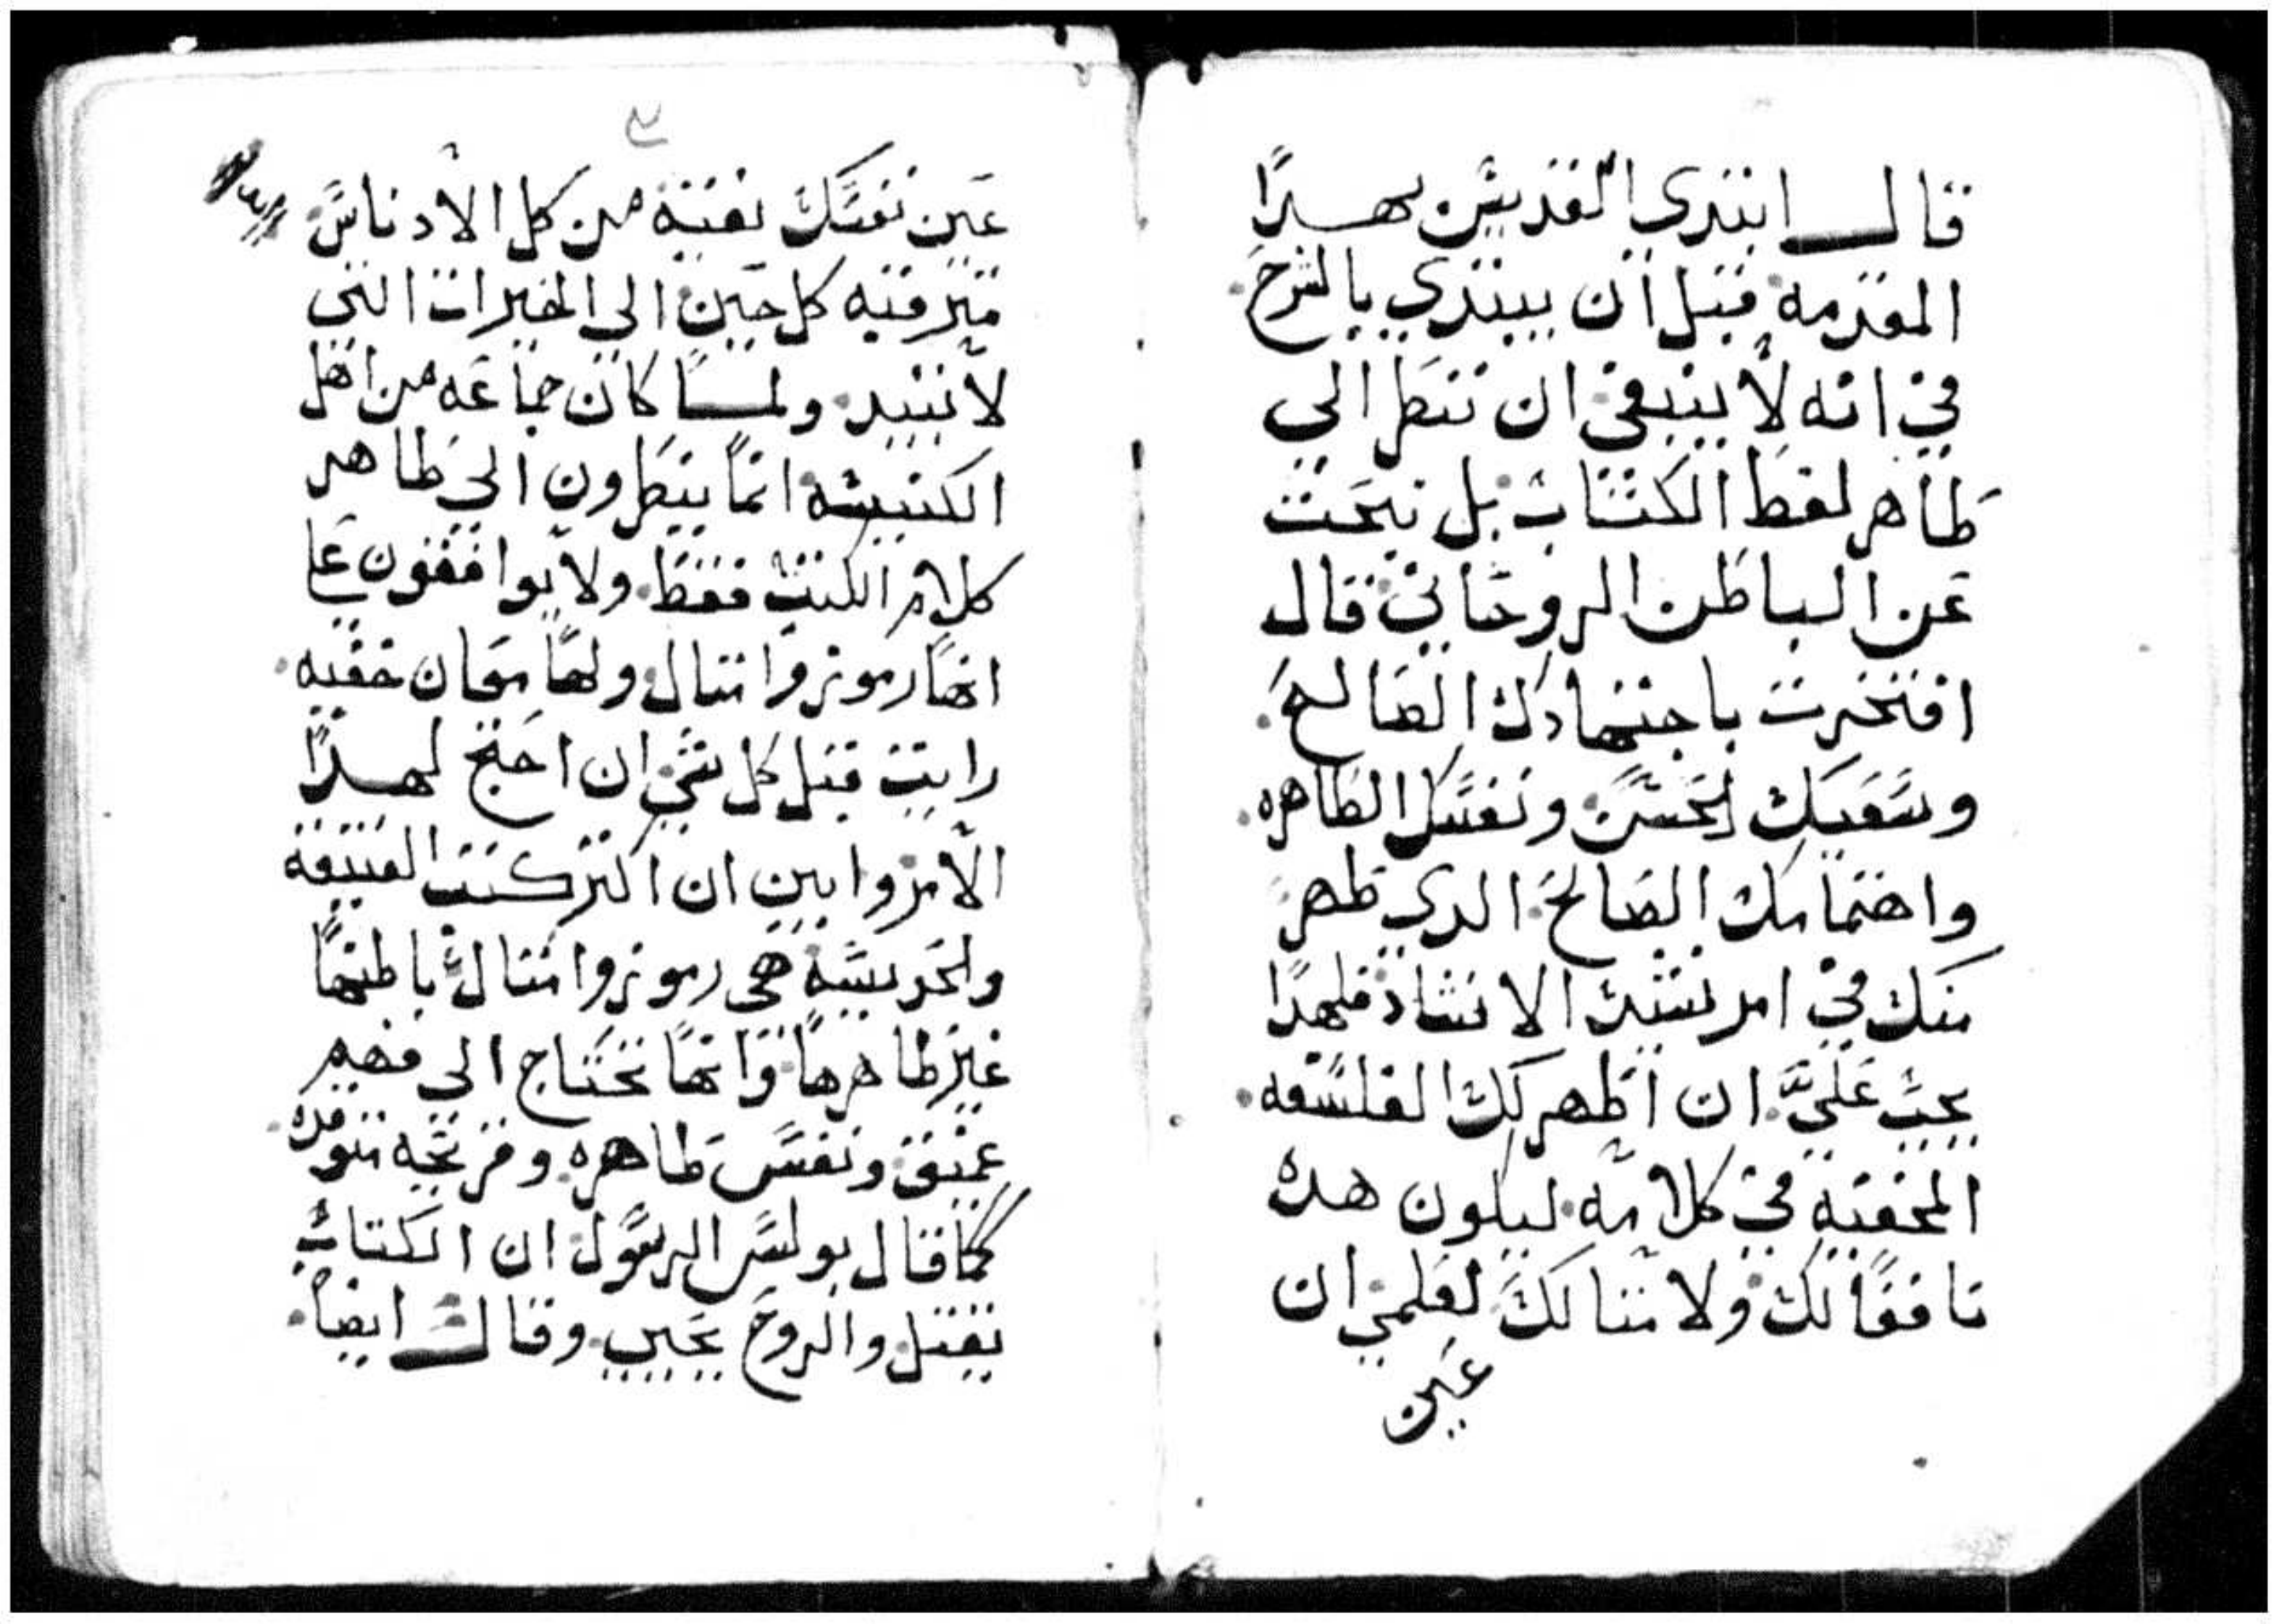 قال ابتدي القديس بهدا
المقدمه قبل ان يبتدي بالشرح
في انه لا ينبغي ان ننظر الي
ظاهر لفظ الكتاب بل نبحت
عن الباطن الروحاني قال
افتخرت باجتهادك الصالح
وسعيك الحسن ونفسك الطاهره
واهتمامك الصالح الدي ظهر
منك في امر نشيد الانشاد فلهدا
يجب علي ان اظهر لك الفلسفه
المخفيه في كلامه ليكون هده
نافعا لك ولامتالك لعلمي ان
عين
عين نفسك نقية من كل الادناس
مترقيه كل حين الى الخيرات التي
لا تبيد ولما كان جماعه من اهل
الكنيسه انما ينظرون الي ظاهر
كلام الكتب فقط ولا يوافقون علي
انها رموز وامتال ولها معان خفيه
رايت قبل كل شي ان احتج لهدا
الامر وابين ان اكتر كتب العتيقة
والحديتة هي رموز وامتال باطنها
غير ظاهرها وانها تحتاج الى فهم
عميق ونفس طاهره وقريحه متوقده
كما قال بولس الرسول ان الكتاب
يقتل والروح يحيي وقال ايضا